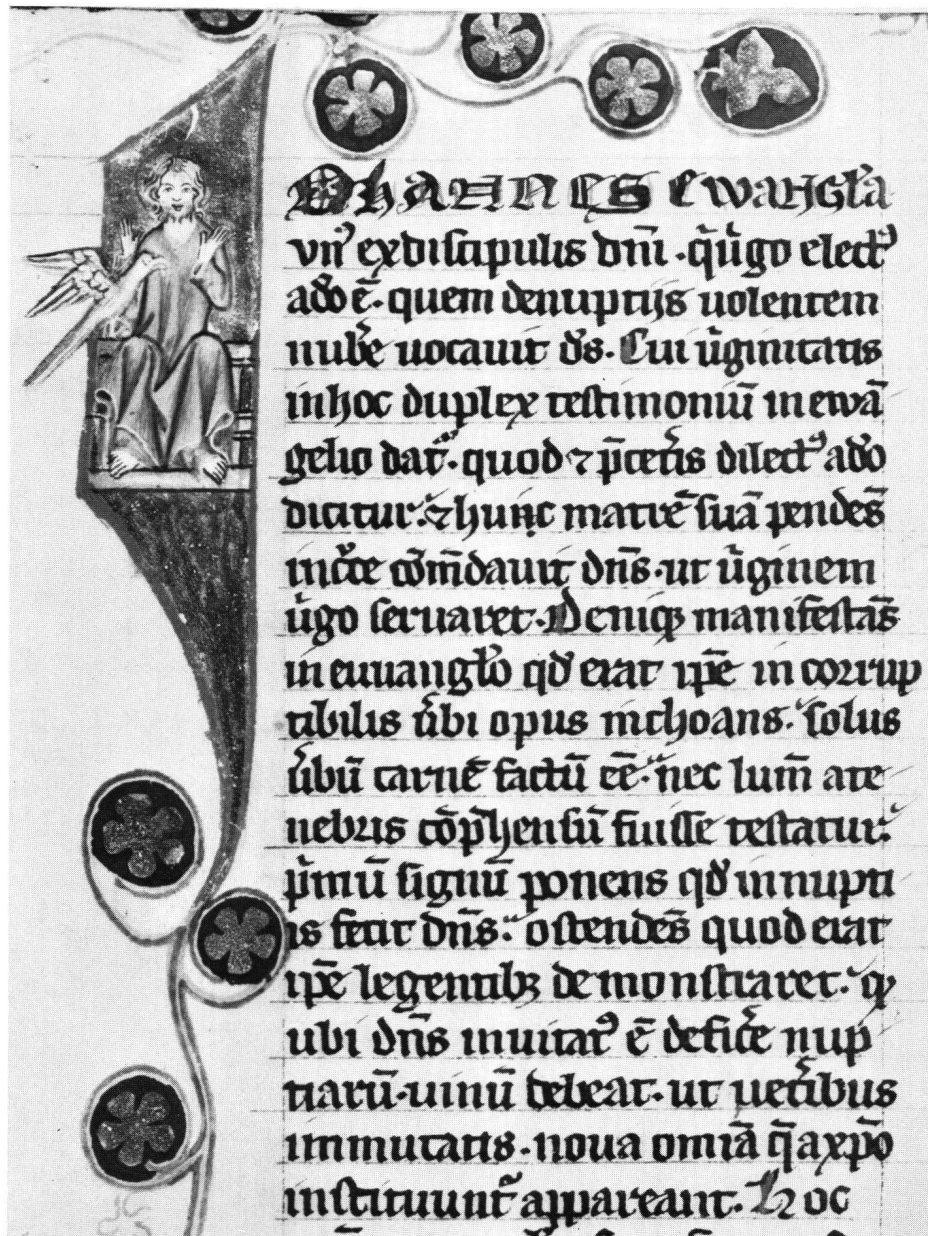 OHANNES ewang̅l̅a
vn⁹ ex discipulis dn̅i · q̅ ūgo elect⁹
a dō ē · quem de nuptijs uolentem
nub̅e uocauit ds̅ · Cui ūginitatis
in hoc duplex testimoniū in ewā
gelio dat᷑ · quod ⁊ p̅ cet̅is dilect⁹ a dō
dicitur · ⁊ hunc matrē suā pendēs
in c̅ce cōm̅dauit dn̅s · ut ūginem
ūgo seruaret · Deniqꝫ manifestās
in euuangl̅o qd̅ erat ip̅e in corrup
tibilis ūbi opus inchoans · solus
ūbū carnē factū eē · nec lum̅ a te
nebris cōp̅hensū fuisse testatur ·
p̅mū signū ponens qd̅ in nupti
is fecit dn̅s · ostendēs quod erat
ip̅e legentibꝫ demonstraret · qꝫ
ubi dn̅s inuitat⁹ ē defic̅e nup
tiarū · uinū debeat · ut uet̅ibus
immutatis · noua om̅ia q̅ a xp̅o
instituunt᷑ appareant · Hoc